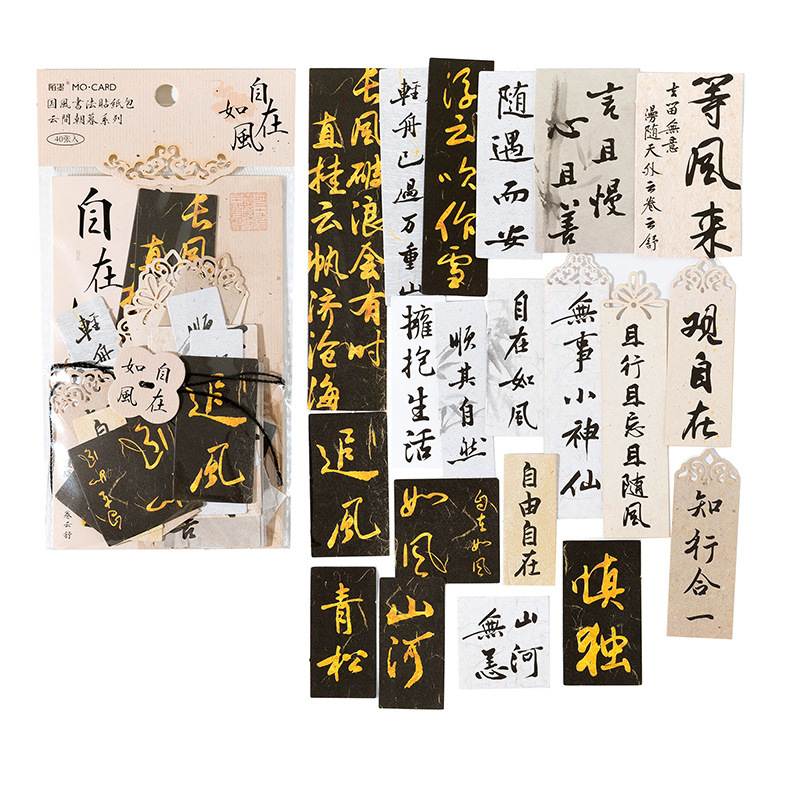 陌墨® MO·CARD
国風書法貼紙包
云間朝暮系列
40張入
自在
如風
自在
長風
直
輕舟
順
自在
如風
追風
卷云舒
長風破浪会有时
直挂云帆济沧海
輕舟已過万重山
浮云吹作雪
随遇而安
言且慢
心且善
等風来
去留無意
漫随天外云卷云舒
擁抱生活
順其自然
自在如風
無事小神仙
且行且忘且随風
观自在
追風
如風
自在如風
自由自在
知行合一
青松
山河
山河
無恙
慎独